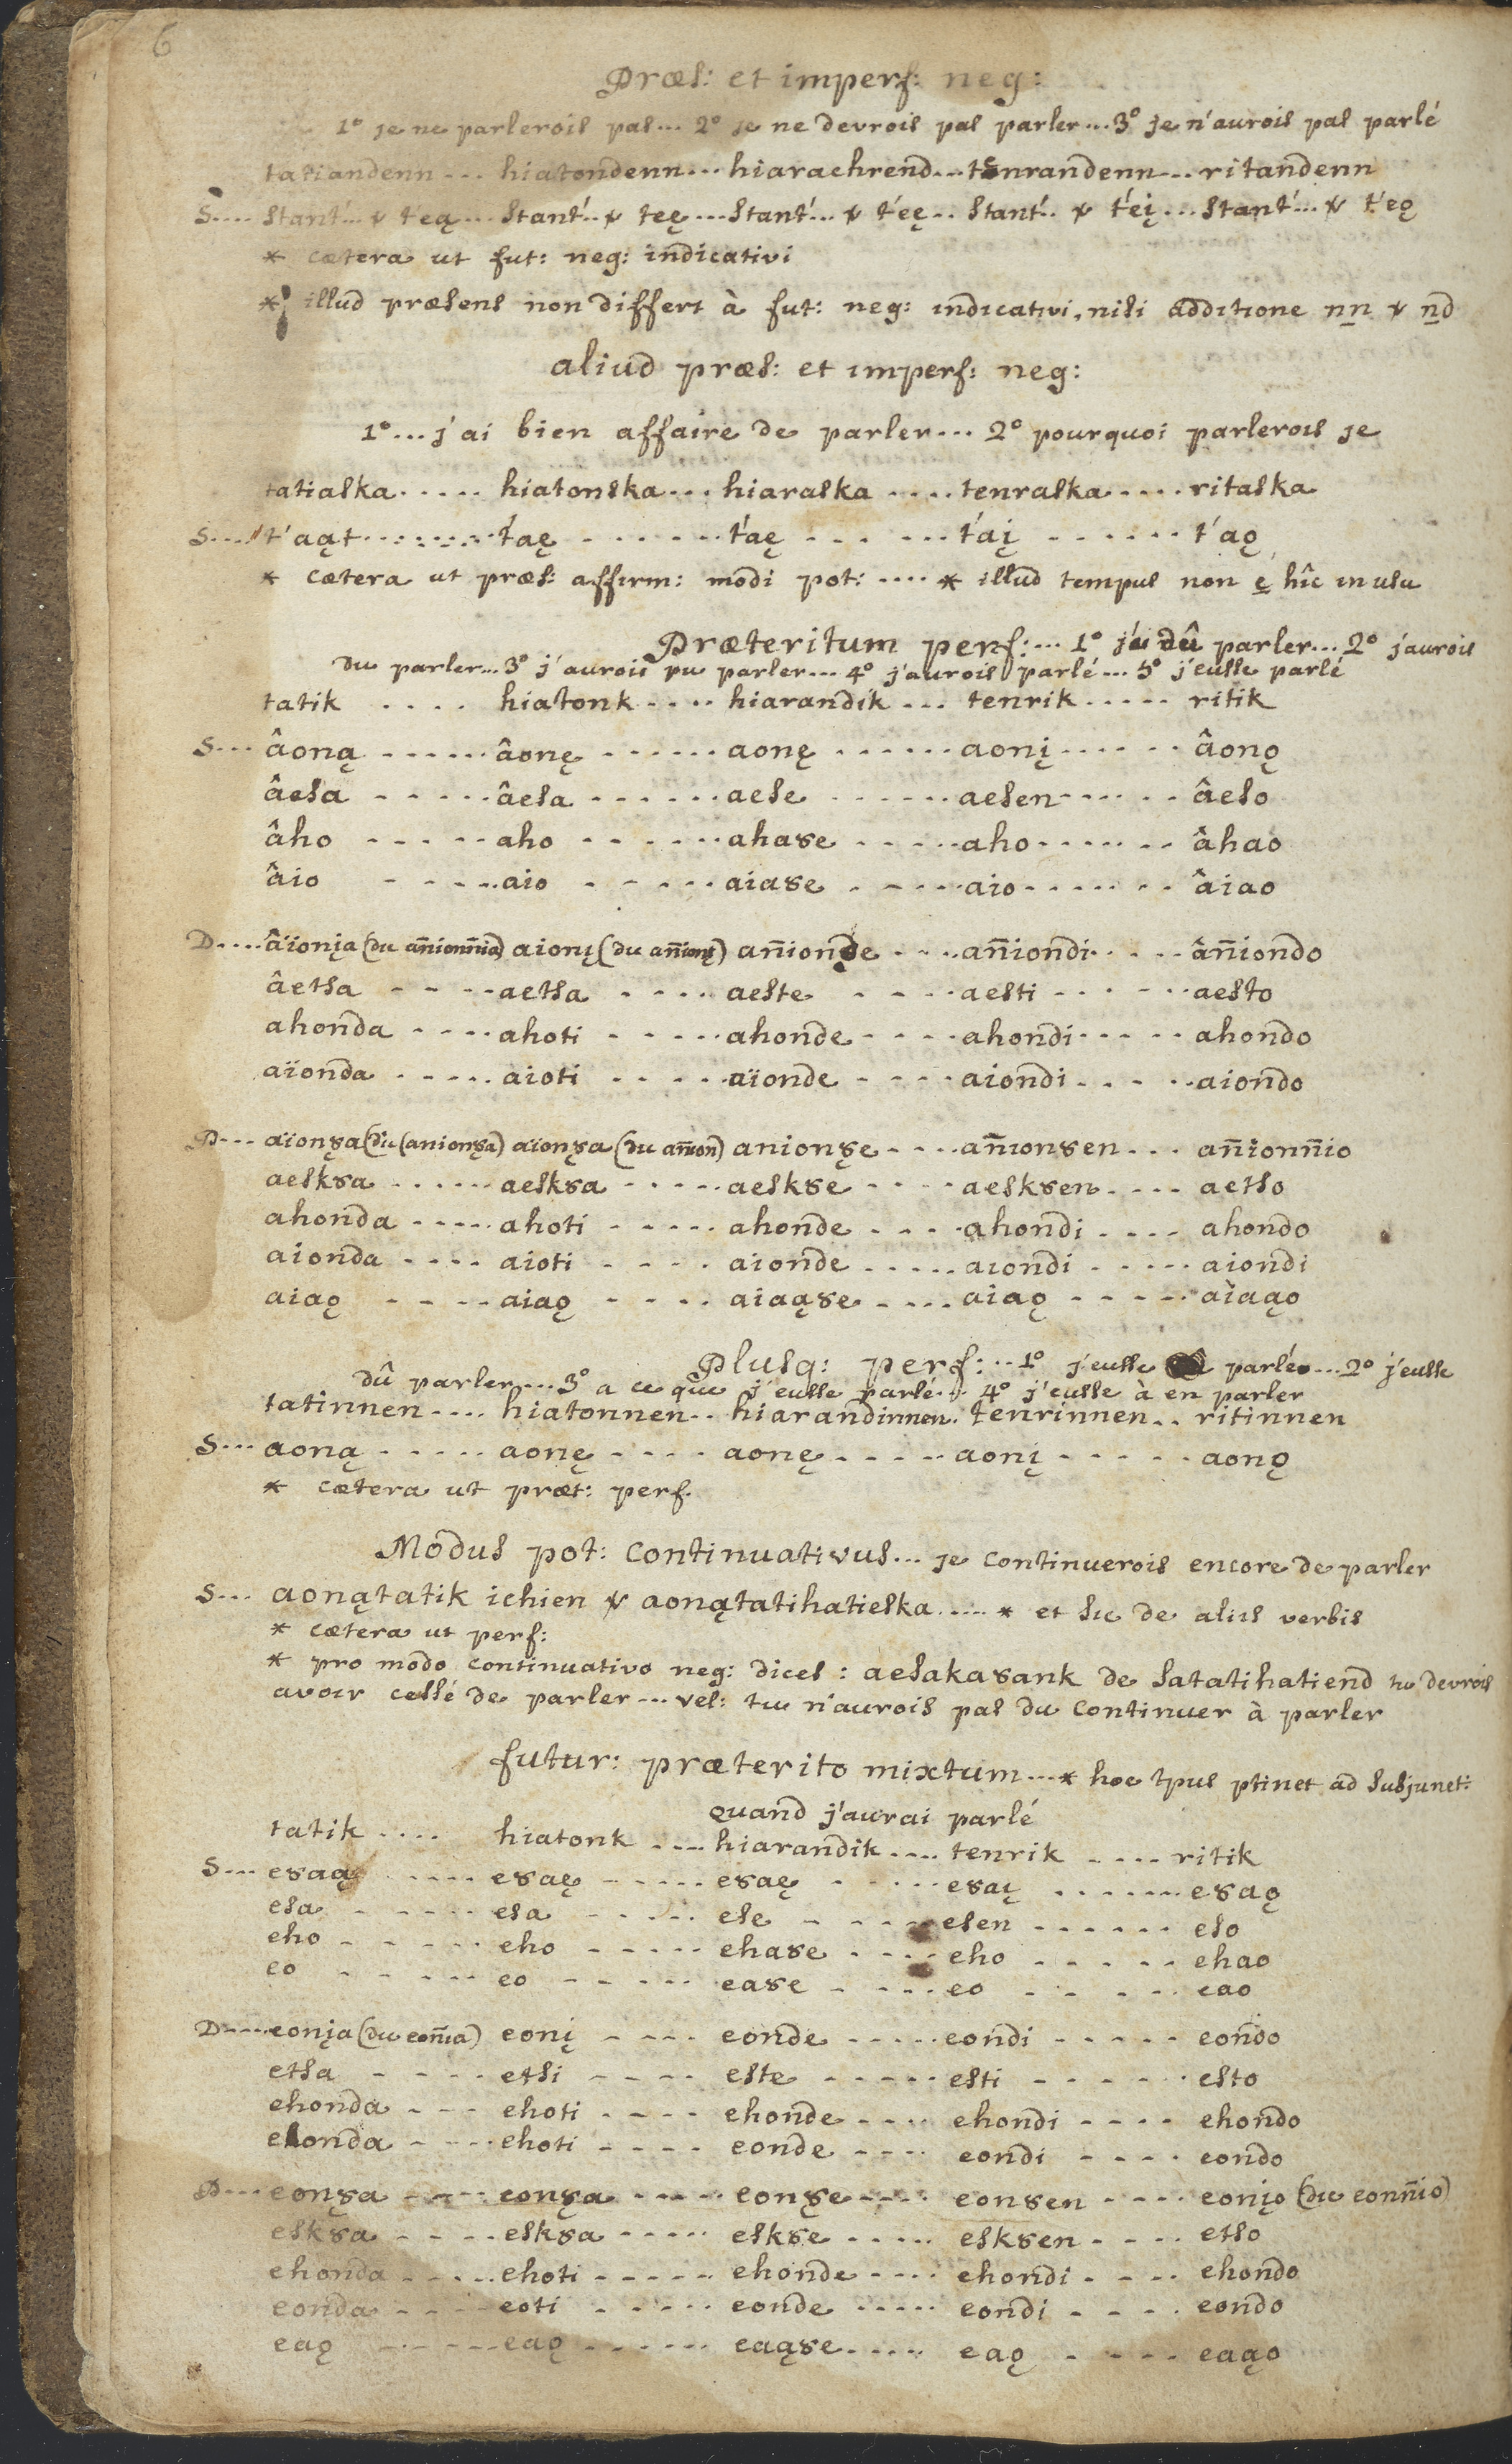 6
Præs: et imperf: neg:
1° je ne parlerois pas... 2° je ne devrois pas parler...3° je n'aurois pas parlé
tatiandenn... hiatondenn... hiarachrend...tenrandenn... ritandenn
S.... stant'... & t'eą... stant'.. & teę ...stant'... & t'eę.. stant'.. & t'eį... stant'... & t'eǫ
* cætera ut fut: neg: indicativi
* illud præsens non differt à fut: neg: indicativi, nisi additione nn & nd
aliud præs: et imperf: neg:
1°... j'ai bien affaire de parler... 2° pourquoi parlerois je
tatiaska..... hiatonska... hiaraska .... tenraska..... ritaska
S.... t'aąt......... t'aę ......... t'aę ......... t'aį ......... t'aǫ
* cætera ut præs: affirm: modi pot: .... * illud tempus non e hîc in usu
Præteritum perf:... 1° j'ai dû parler... 2° j'aurois
du parler... 3° j'aurois pu parler... 4° j'aurois parlé... 5° j'eusse parlé
tatik .... hiatonk .... hiarandik ... tenrik ..... ritik
S... âoną ...... âonę ...... aonę ...... aonį ...... âonǫ
âesa ..... âesa ...... aese ...... aesen ...... âeso
âho ..... aho ...... ahaȣe ..... aho ...... âhao
âio ..... aio ..... aiaȣe ..... aio ...... âiao
D.... âïonįa (du añionñia) aionį (du añionį) añionde .... añiondi .... âñiondo
âetsa .... aetsa .... aeste .... aesti ..... aesto
ahonda .... ahoti ..... ahonde .... ahondi ..... ahondo
aïonda ..... aioti ..... aïonde .... aiondi ..... aiondo
P... aïonȣ̨a (du (anionȣ̨a) aïonȣ̨a (du añion) anionȣ̨e .... añionȣen ... añionñio
aeskȣa ...... aeskȣa ..... aeskȣe .... aeskȣen .... aetso
ahonda ..... ahoti ..... ahonde .... ahondi .... ahondo
aionda .... aioti .... aionde ..... aiondi ..... aiondi
aiaǫ .... aiaǫ .... aiaąȣe .... aiaǫ ..... aiaąo
Plusq: perf: .. 1° j'eusse parlé... 2° j'eusse
dû parler... 3° a ce que j'eusse parlé.. 4° j'eusse à en parler
tatinnen .... hiatonnen .. hiarandinnen. tenrinnen .. ritinnen
S... aoną ..... aonę .... aonę ..... aonį ..... aonǫ
* cætera ut præt: perf.
Modus pot: continuativus... je continuerois encore de parler
S... aonątatik ichien & aonątatihatieska .... * et sic de aliis verbis
* cætera ut perf:
* pro modo continuativo neg: dices : aesakaȣank de satatihatiend tu devrois
avoir cessé de parler ... vel: tu n'aurois pas du continuer à parler
futur: præterito mixtum ... * hoc tpus ptinet ad subjunct:
quand j'aurai parlé
tatik .... hiatonk .... hiarandik .... tenrik .... ritik
S... eȣaą .... eȣaę ..... eȣaę ..... eȣaį ...... eȣaǫ
esa ..... esa ..... ese .... esen ...... eso
eho ..... eho ..... ehaȣe .... eho ..... ehao
eo ..... eo ..... eaȣe .... eo ..... eao
D.... eonįa (du eoñia) eonį .... eonde ..... eondi ..... eondo
etsa .... etsi .... este ..... esti ...... esto
ehonda ... ehoti .... ehonde .... ehondi .... ehondo
ehonda .... ehoti .... eonde .... eondi .... eondo
P... eonȣ̨a .... eonȣ̨a ..... eonȣ̨e .... eonȣen .... eonįo (du eonñio)
eskȣa .... eskȣa ..... eskȣe ..... eskȣen .... etso
ehonda ..... ehoti ..... ehonde .... ehondi .... ehondo
eonda .... eoti ..... eonde ..... eondi .... eondo
eaǫ ..... eaǫ ...... eaąȣe ..... eaǫ .... eaąo